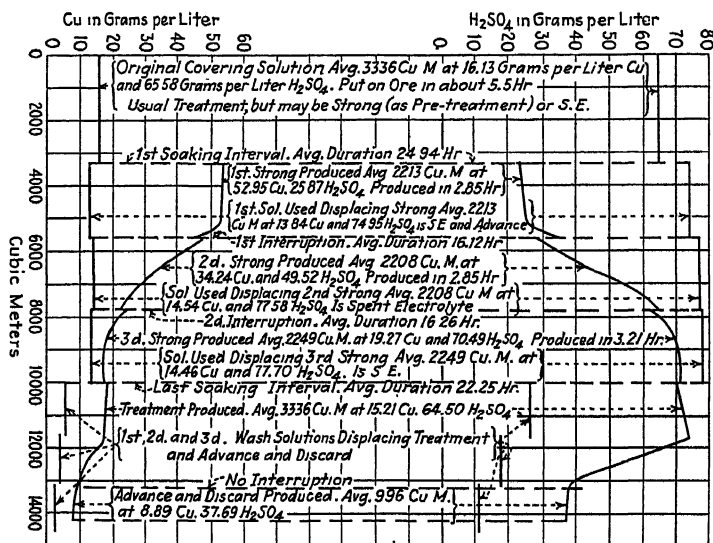 Cu in Grams per Liter
H2SO4 in Grams per Liter
0 10 20 30 40 50 60 0 10 20 30 40 50 60 70 80
Original Covering Solution Avg. 3336 Cu M at 16.13 Grams per Liter Cu
and 65 58 Grams per Liter H2SO4. Put on Ore in about 5.5 Hr
Usual Treatment, but may be Strong (as Pre-treatment) or S.E.
1st Soaking Interval. Avg. Duration 24 94 Hr
1st. Strong Produced Avg 2213 Cu. M at
52.95 Cu, 25 87 H2SO4 Produced in 2.85 Hr
1st. Sol. Used Displacing Strong Avg. 2213
Cu M at 13 84 Cu and 74 95 H2SO4 is S E and Advance
1st Interruption. Avg. Duration 16.12 Hr
2 d. Strong Produced Avg 2208 Cu. M. at
34.24 Cu. and 49.52 H2SO4 Produced in 2.85 Hr
Sol Used Displacing 2nd Strong Avg. 2208 Cu M at
14.54 Cu, and 77 58 H2SO4 Is Spent Electrolyte
2d. Interruption. Avg. Duration 16 26 Hr.
3 d. Strong Produced Avg. 2249 Cu. M. at 19.27 Cu and 70.49 H2SO4 Produced in 3.21 Hr.
Sol. Used Displacing 3rd Strong Avg. 2249 Cu. M. at
14.46 Cu and 77.70 H2SO4. Is S E.
Last Soaking Interval. Avg. Duration 22.25 Hr.
Treatment Produced. Avg. 3336 Cu. M at 15.21 Cu. 64.50 H2SO4
1st, 2d. and 3 d. Wash Solutions Displacing Treatment
and Advance and Discard
No Interruption
Advance and Discard Produced. Avg. 996 Cu M.
at 8.89 Cu. 37.69 H2SO4
Cubic Meters
0
2000
4000
6000
8000
10000
12000
14000